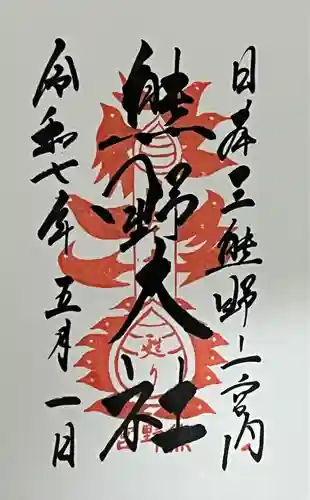 日本三熊野之一宮内
熊野大社
令和七年五月一日